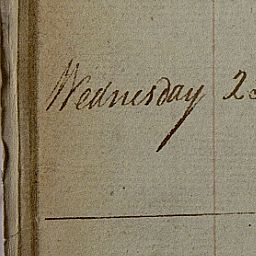 Wednesday 2